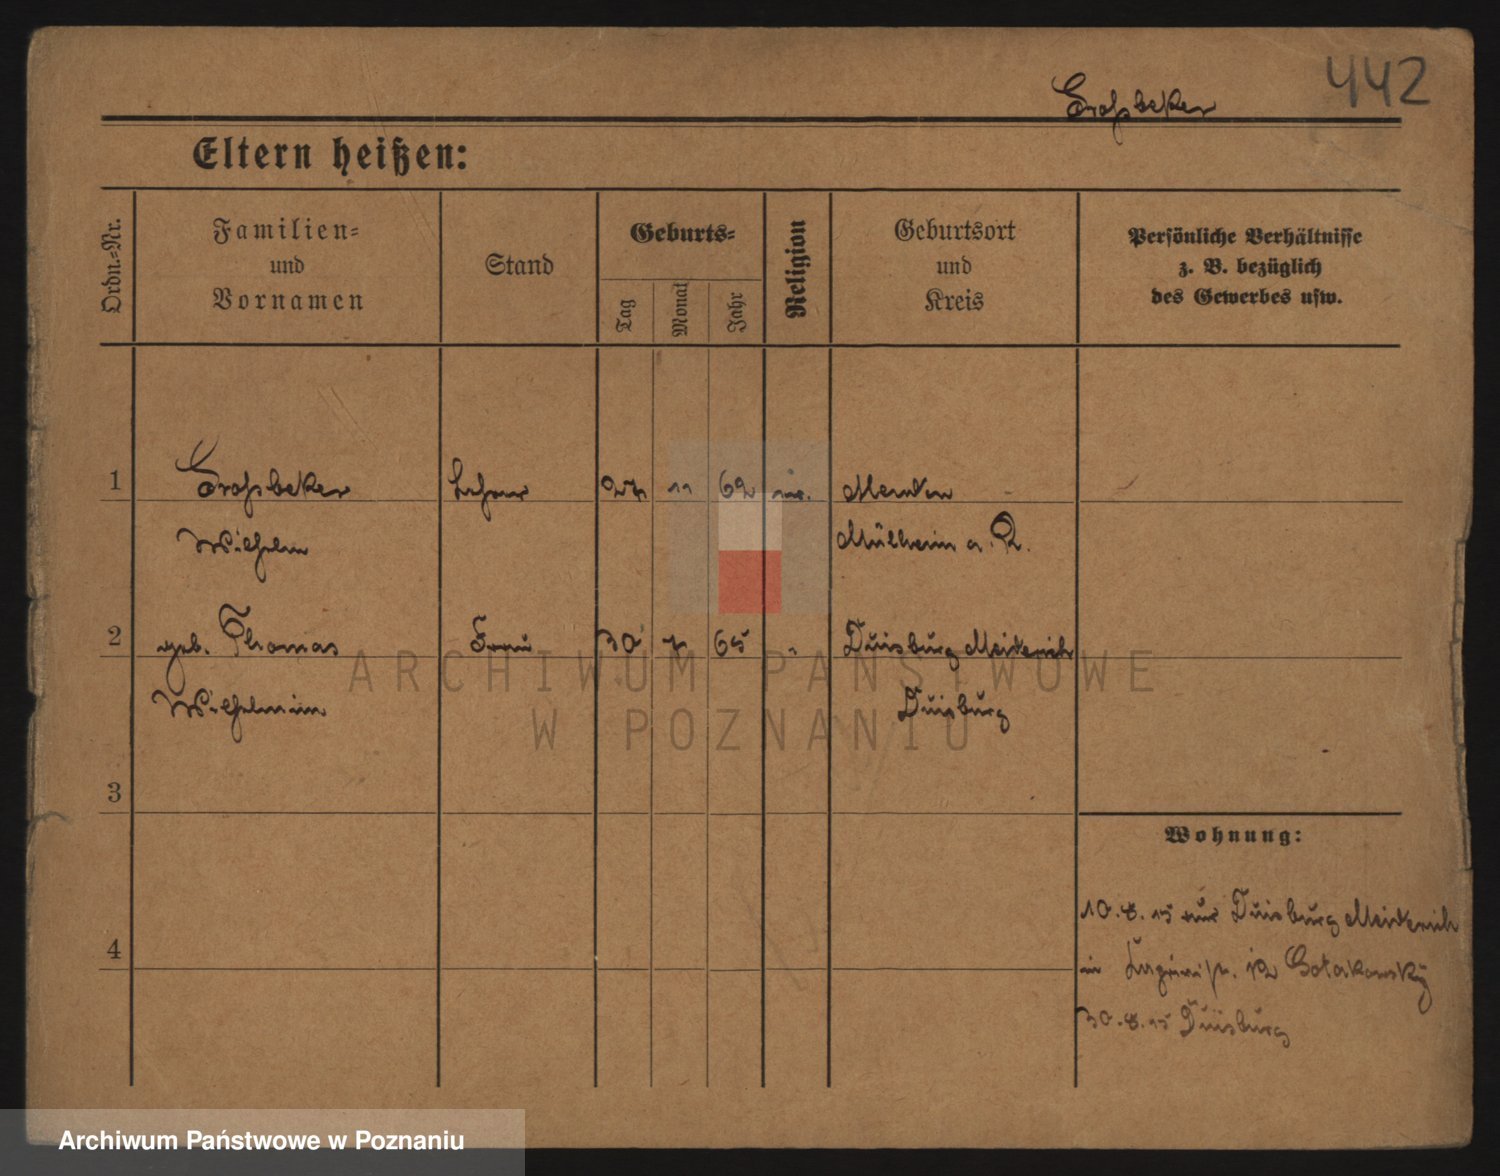 442
Großbeker
Eltern heißen:
Ordn.-Nr.
Familien-
und
Vornamen
Stand
Geburts-
Tag
Monat
Jahr
Religion
Geburtsort
und
Kreis
Persönliche Verhältnisse
z. B. bezüglich
des Gewerbes usw.
1 Großbeker Lehrer 27 11 62
Wilhelm Mülheim a. R.
2 geb. Thomas Frau 30 7 65 " Duisburg Meiderich
Wilhelmine Duisburg
3
Wohnung:
10.8.15 aus Duisburg Meiderich
4
30.8.15 Duisburg
ARCHIWUM PAŃSTWOWE
W POZNANIU
Archiwum Państwowe w Poznaniu